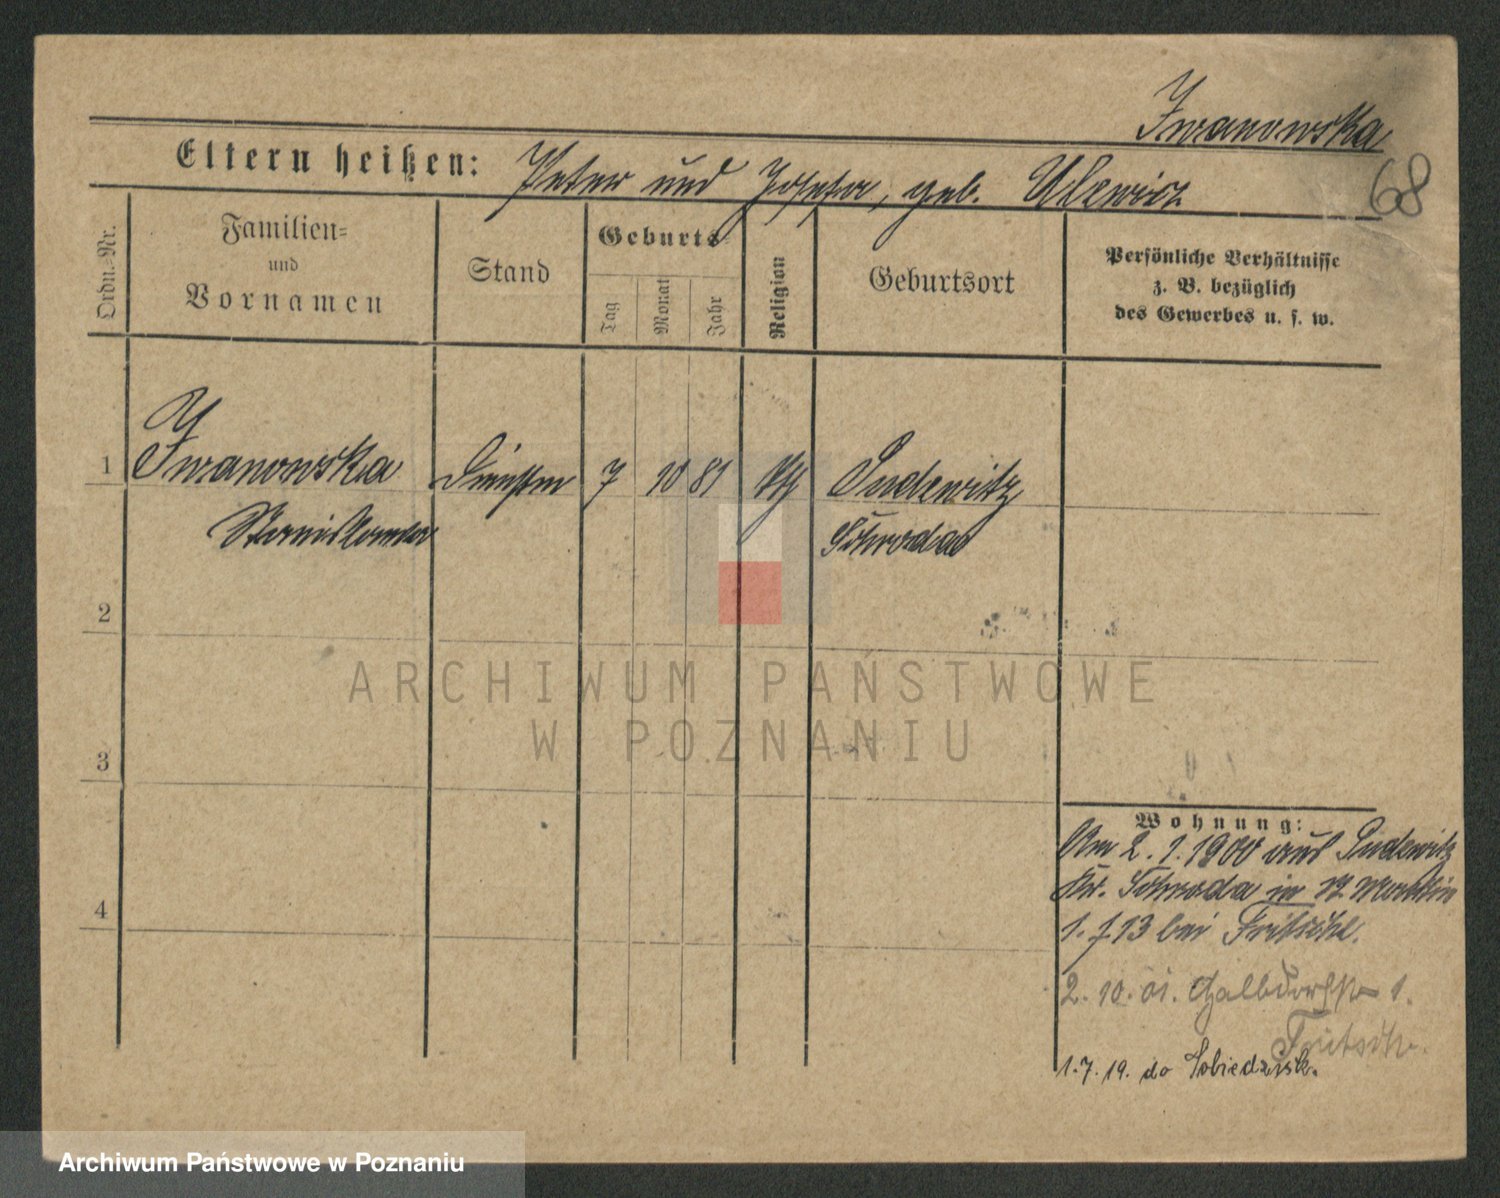 Iwanowska
68
Eltern heißen: Peter und Josefa, geb. Ulewicz
Ordn.=Nr.
Familien=
und
Vornamen
Stand
Geburts=
Tag
Monat
Jahr
Religion
Geburtsort
Persönliche Verhältnisse
z. B. bezüglich
des Gewerbes u. s. w.
1 Iwanowska 7 10 81 kth Pudewitz
Stanislawa Schroda
2
3
4
Wohnung:
Am 2. 1. 1900 aus Pudewitz
Kr. Schroda in
1. bei Fritsche.
2. 10. 01. 1.
Fritsche.
1. 7. 19. do
ARCHIWUM PAŃSTWOWE
W POZNANIU
Archiwum Państwowe w Poznaniu